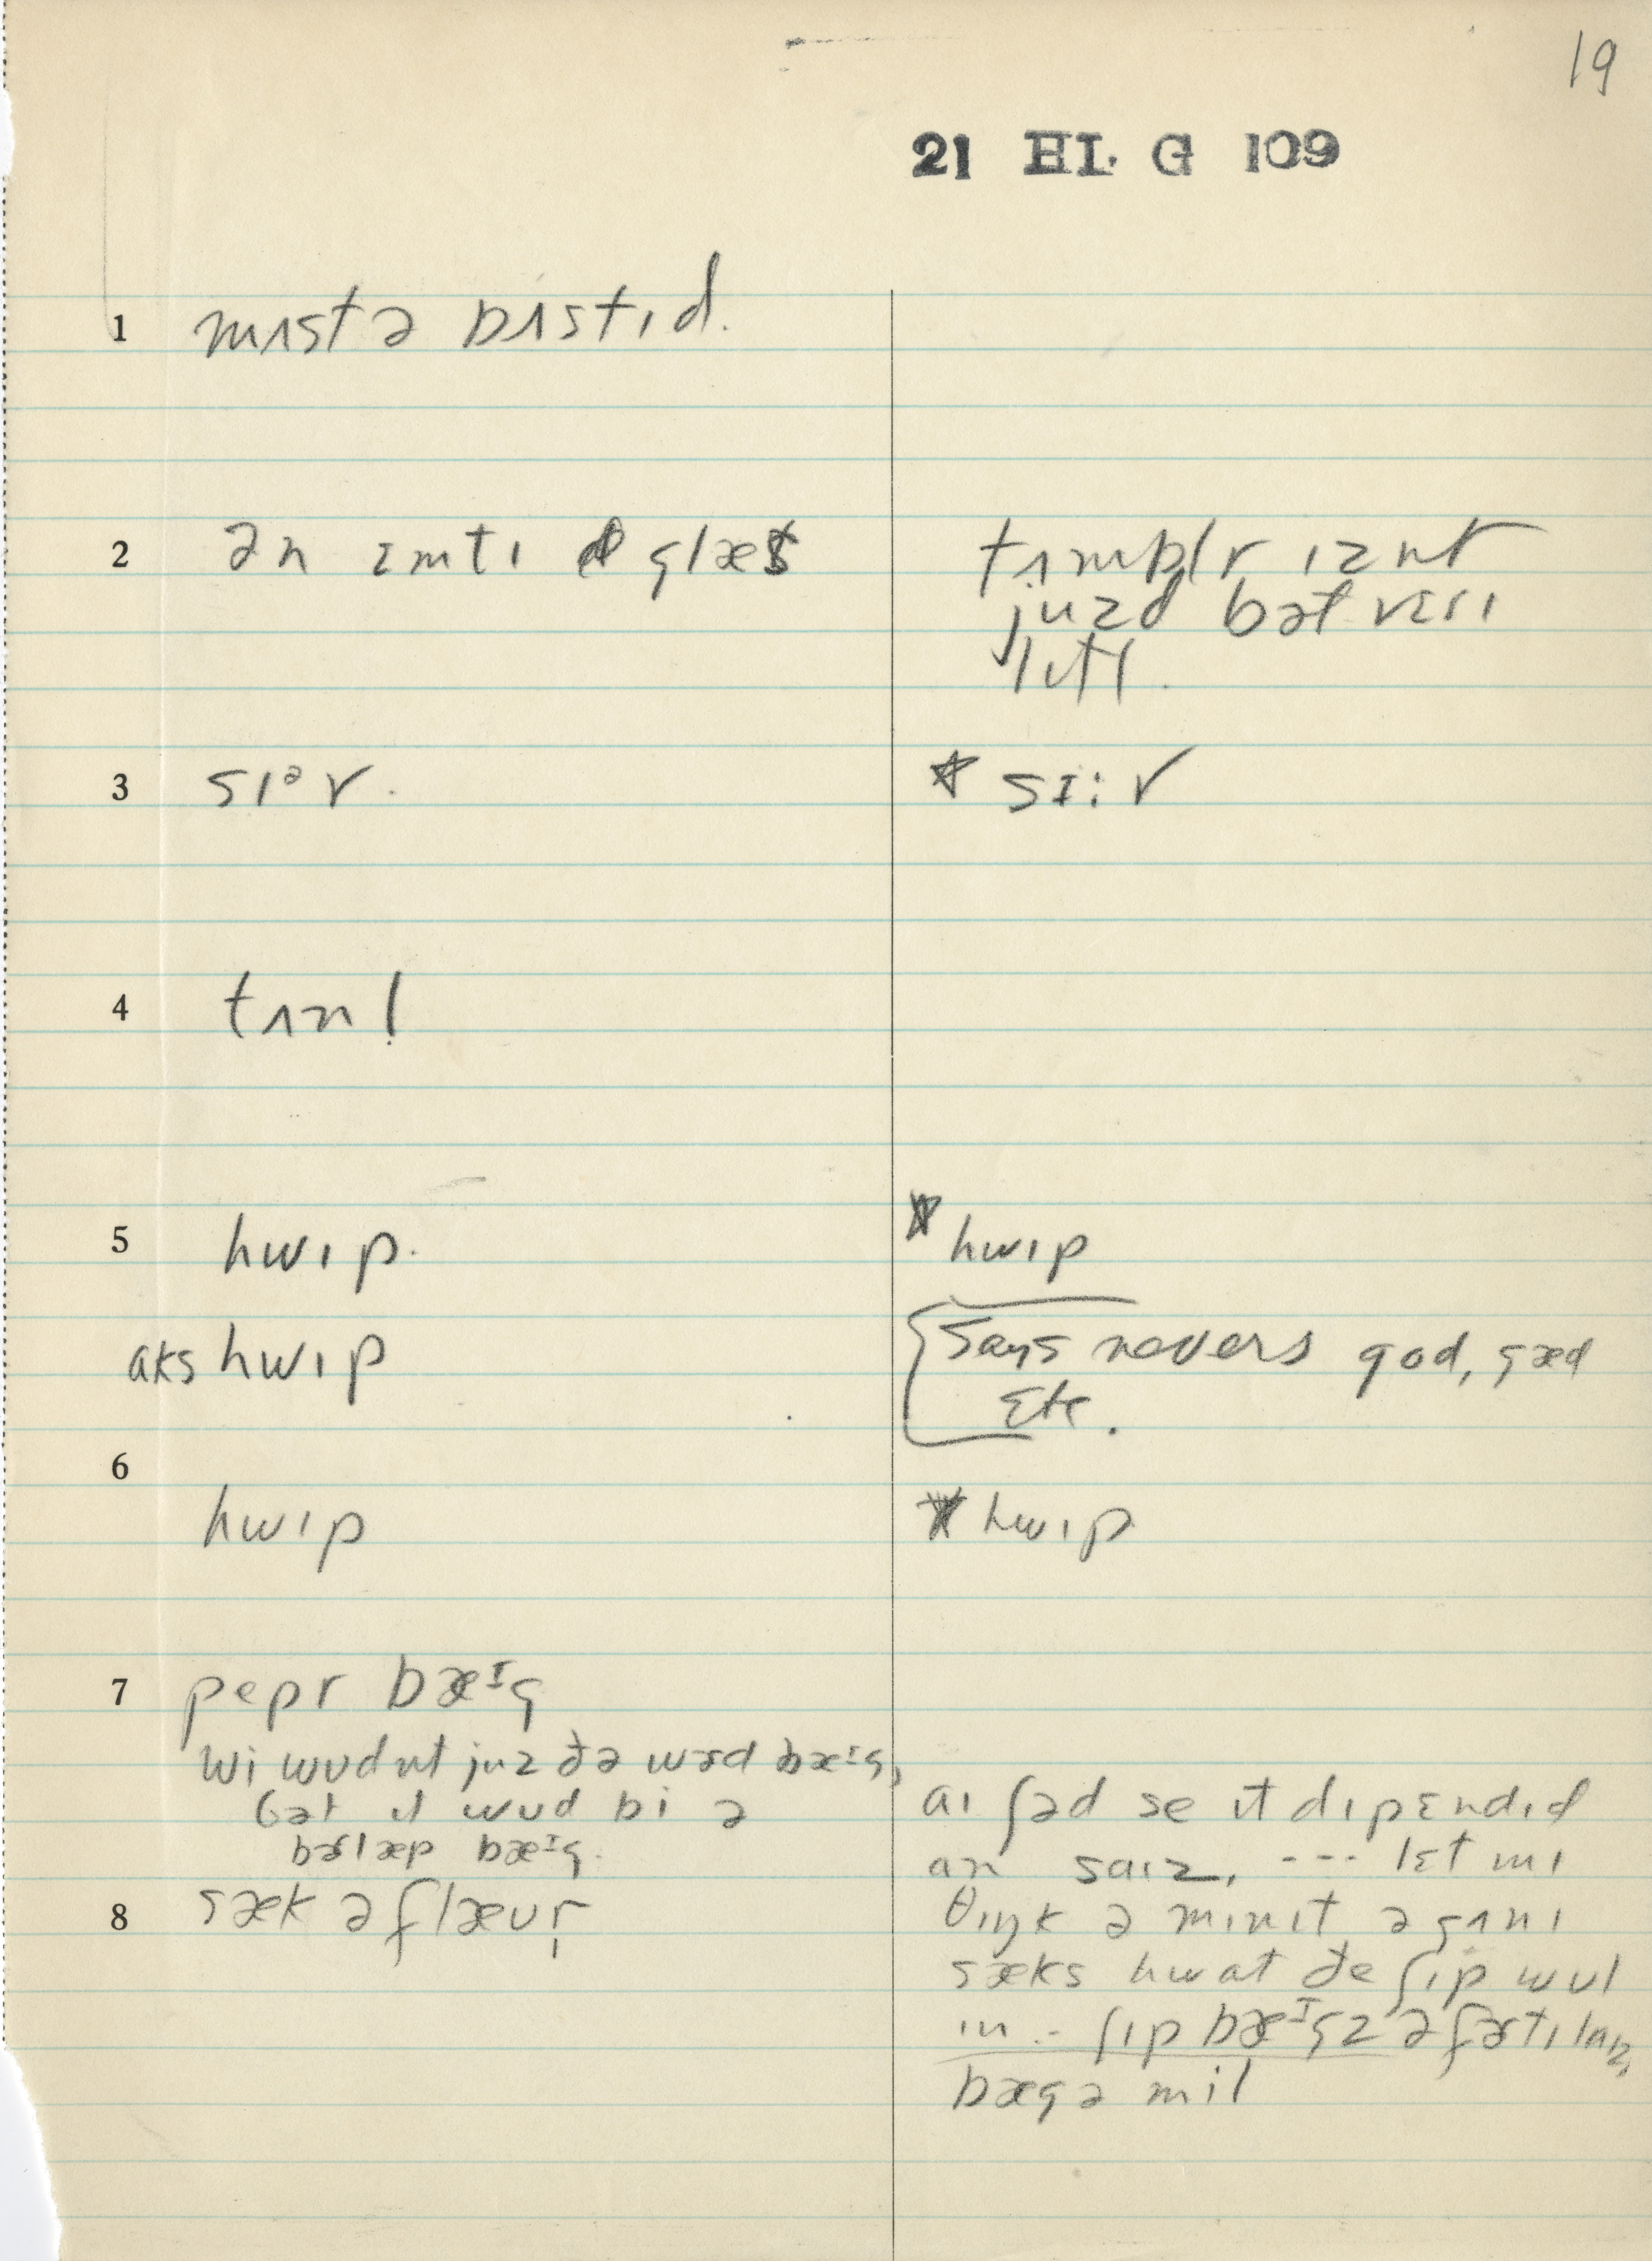 19
21 HL G 109
1 mʌst ə bʌstɪd.
2 ən ɛmtɪ glæs
tʌmblr ɪznt
juzd bət vɛrɪ
lɪtl.
3 sɪᵊr.
* sɪ:r
4 tʌnl̩
5 hwɪp.
* hwɪp
aks hwɪp
says nevers god, gæd
Etc.
6
hwɪp
* hwɪp
7 pepr bæᶦg
wi wʊdnt juz ðə wɜd bæᶦg,
bət ɪt wʊd bi ə
bɜlæp bæᶦg.
8 sæk ə flæʊr̩
aɪ ʃəd se ɪt dɪpɛndɪd
an saɪz, --- lɛt mɪ
θɪŋk ə mɪnɪt ə gʌnɪ
sæks hwat ðe ʃɪp wʊl
ɪn -- ʃɪp bæᶦgz ə fɜtɪlaɪz,
bæg ə mil